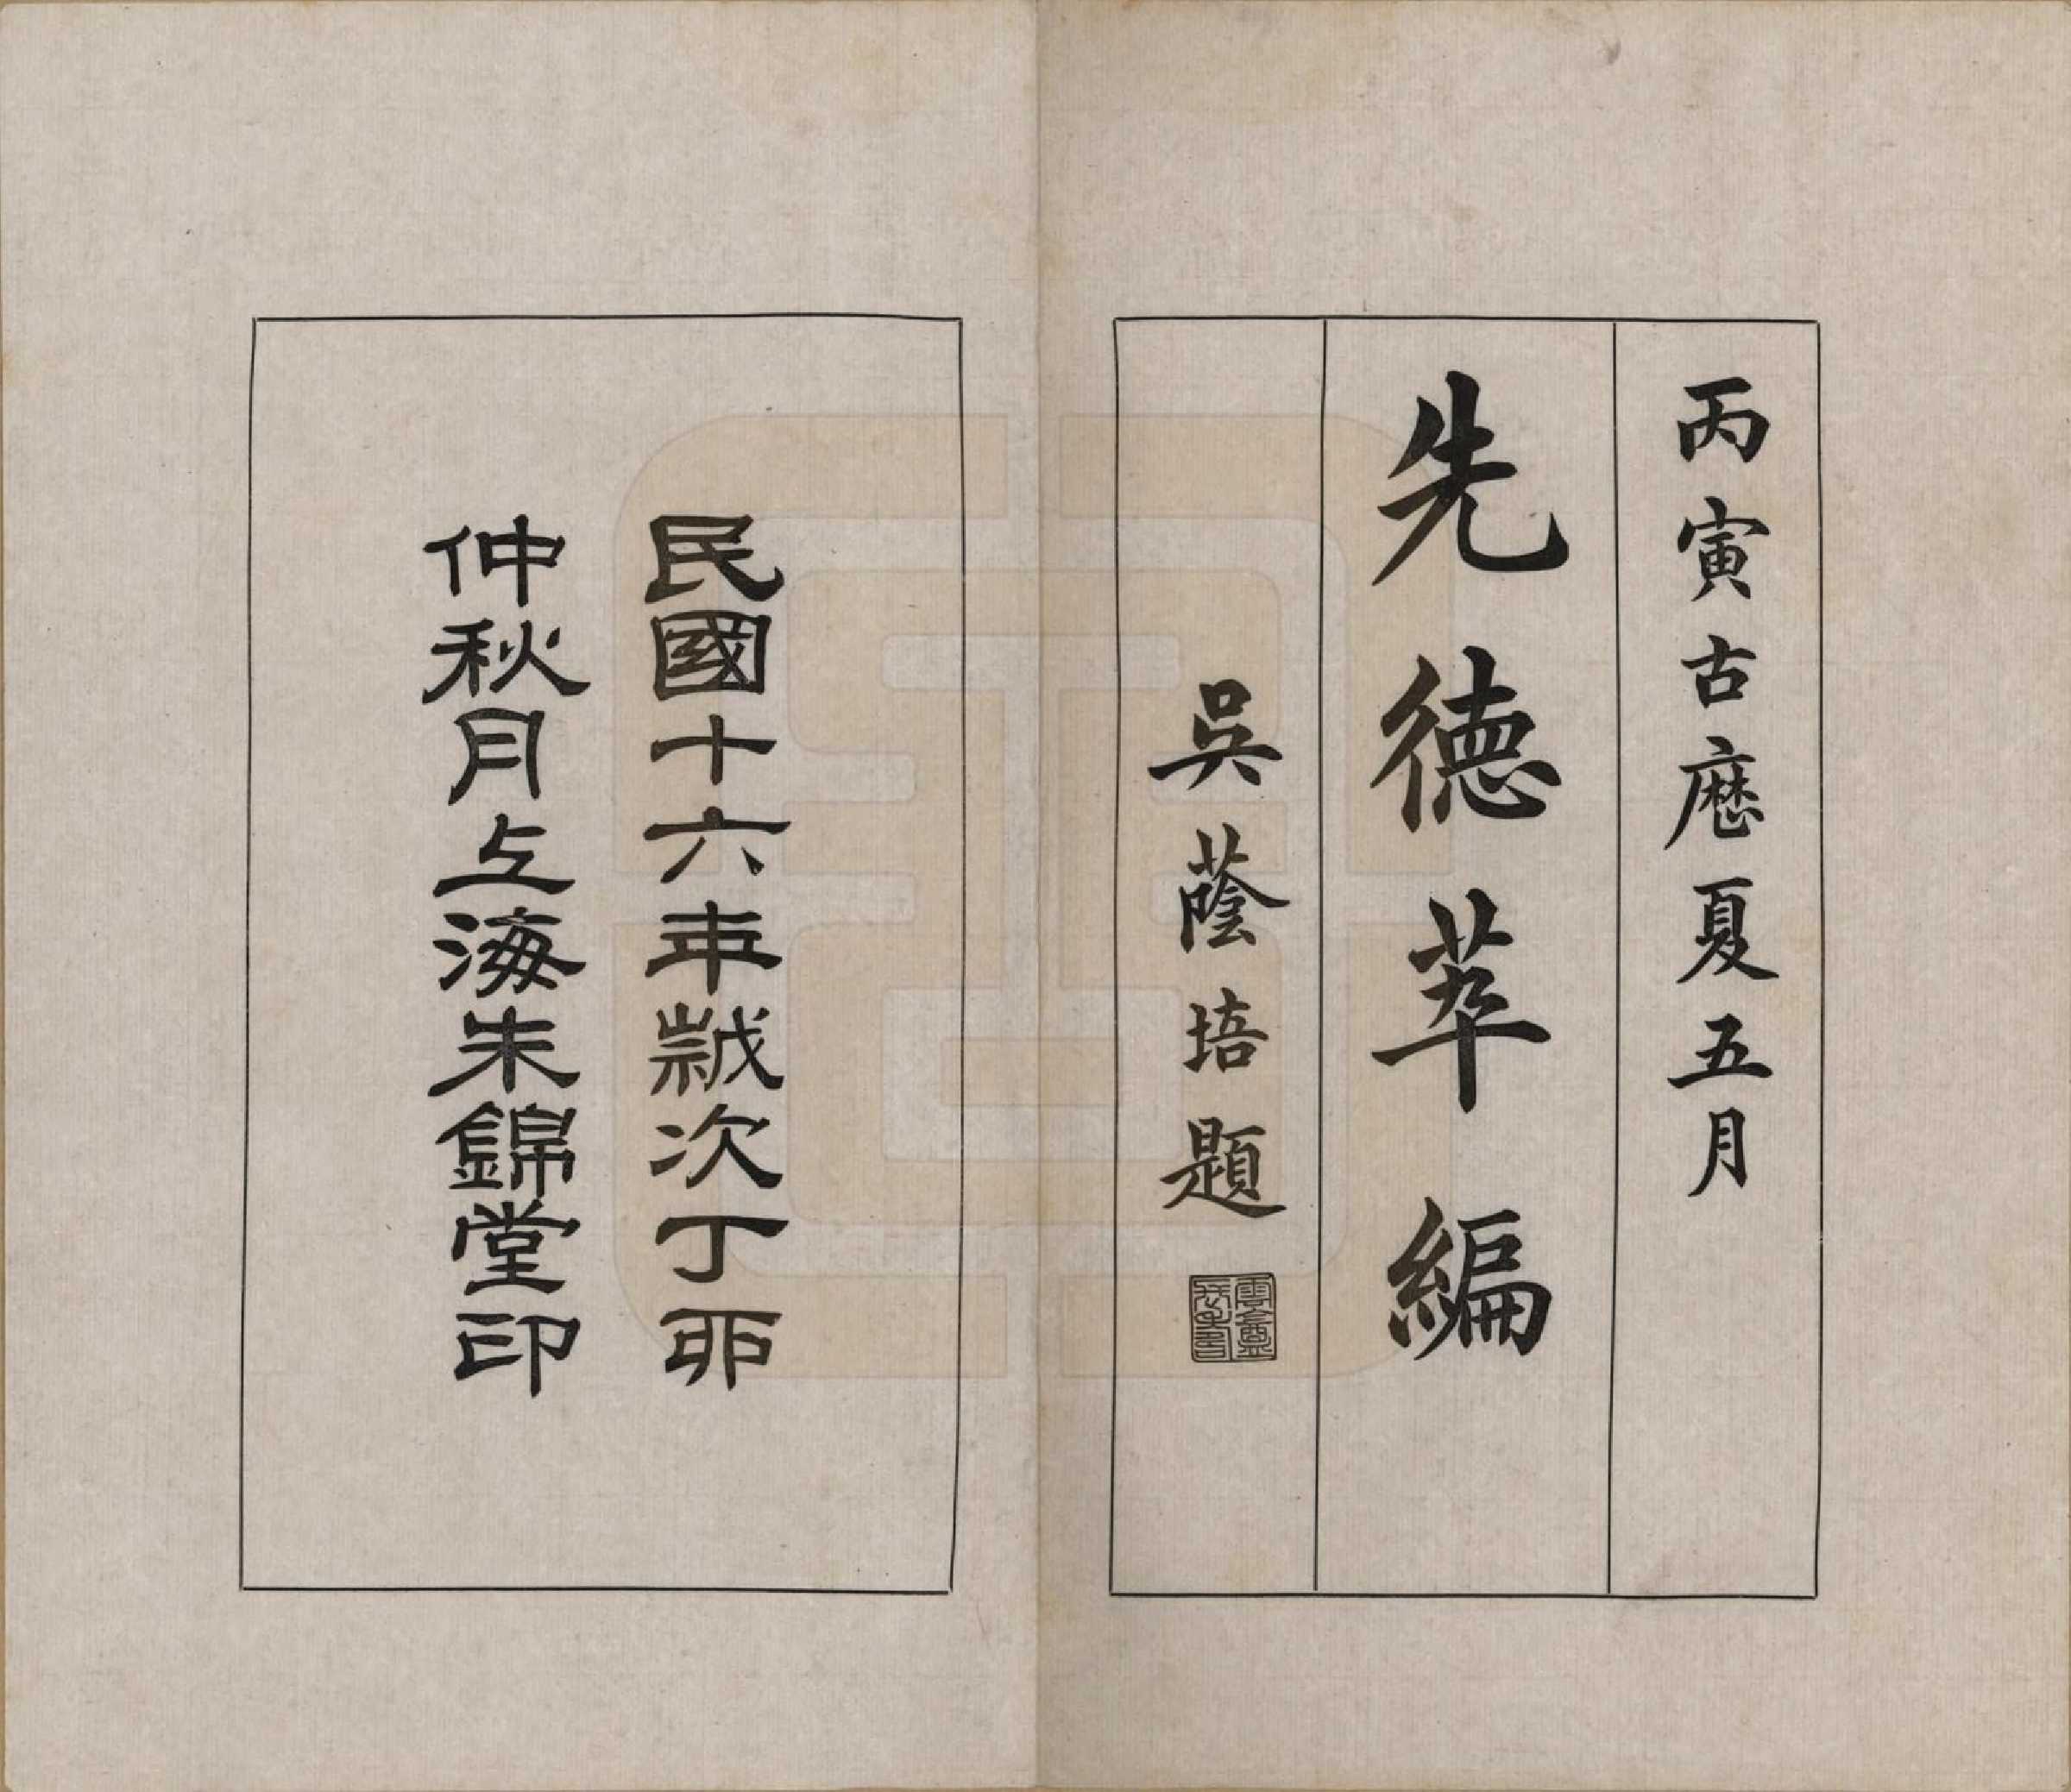 丙寅古厯夏五月
先德萃編
吳蔭培題
民國十六年歲次丁卯
仲秋月上海朱錦堂印